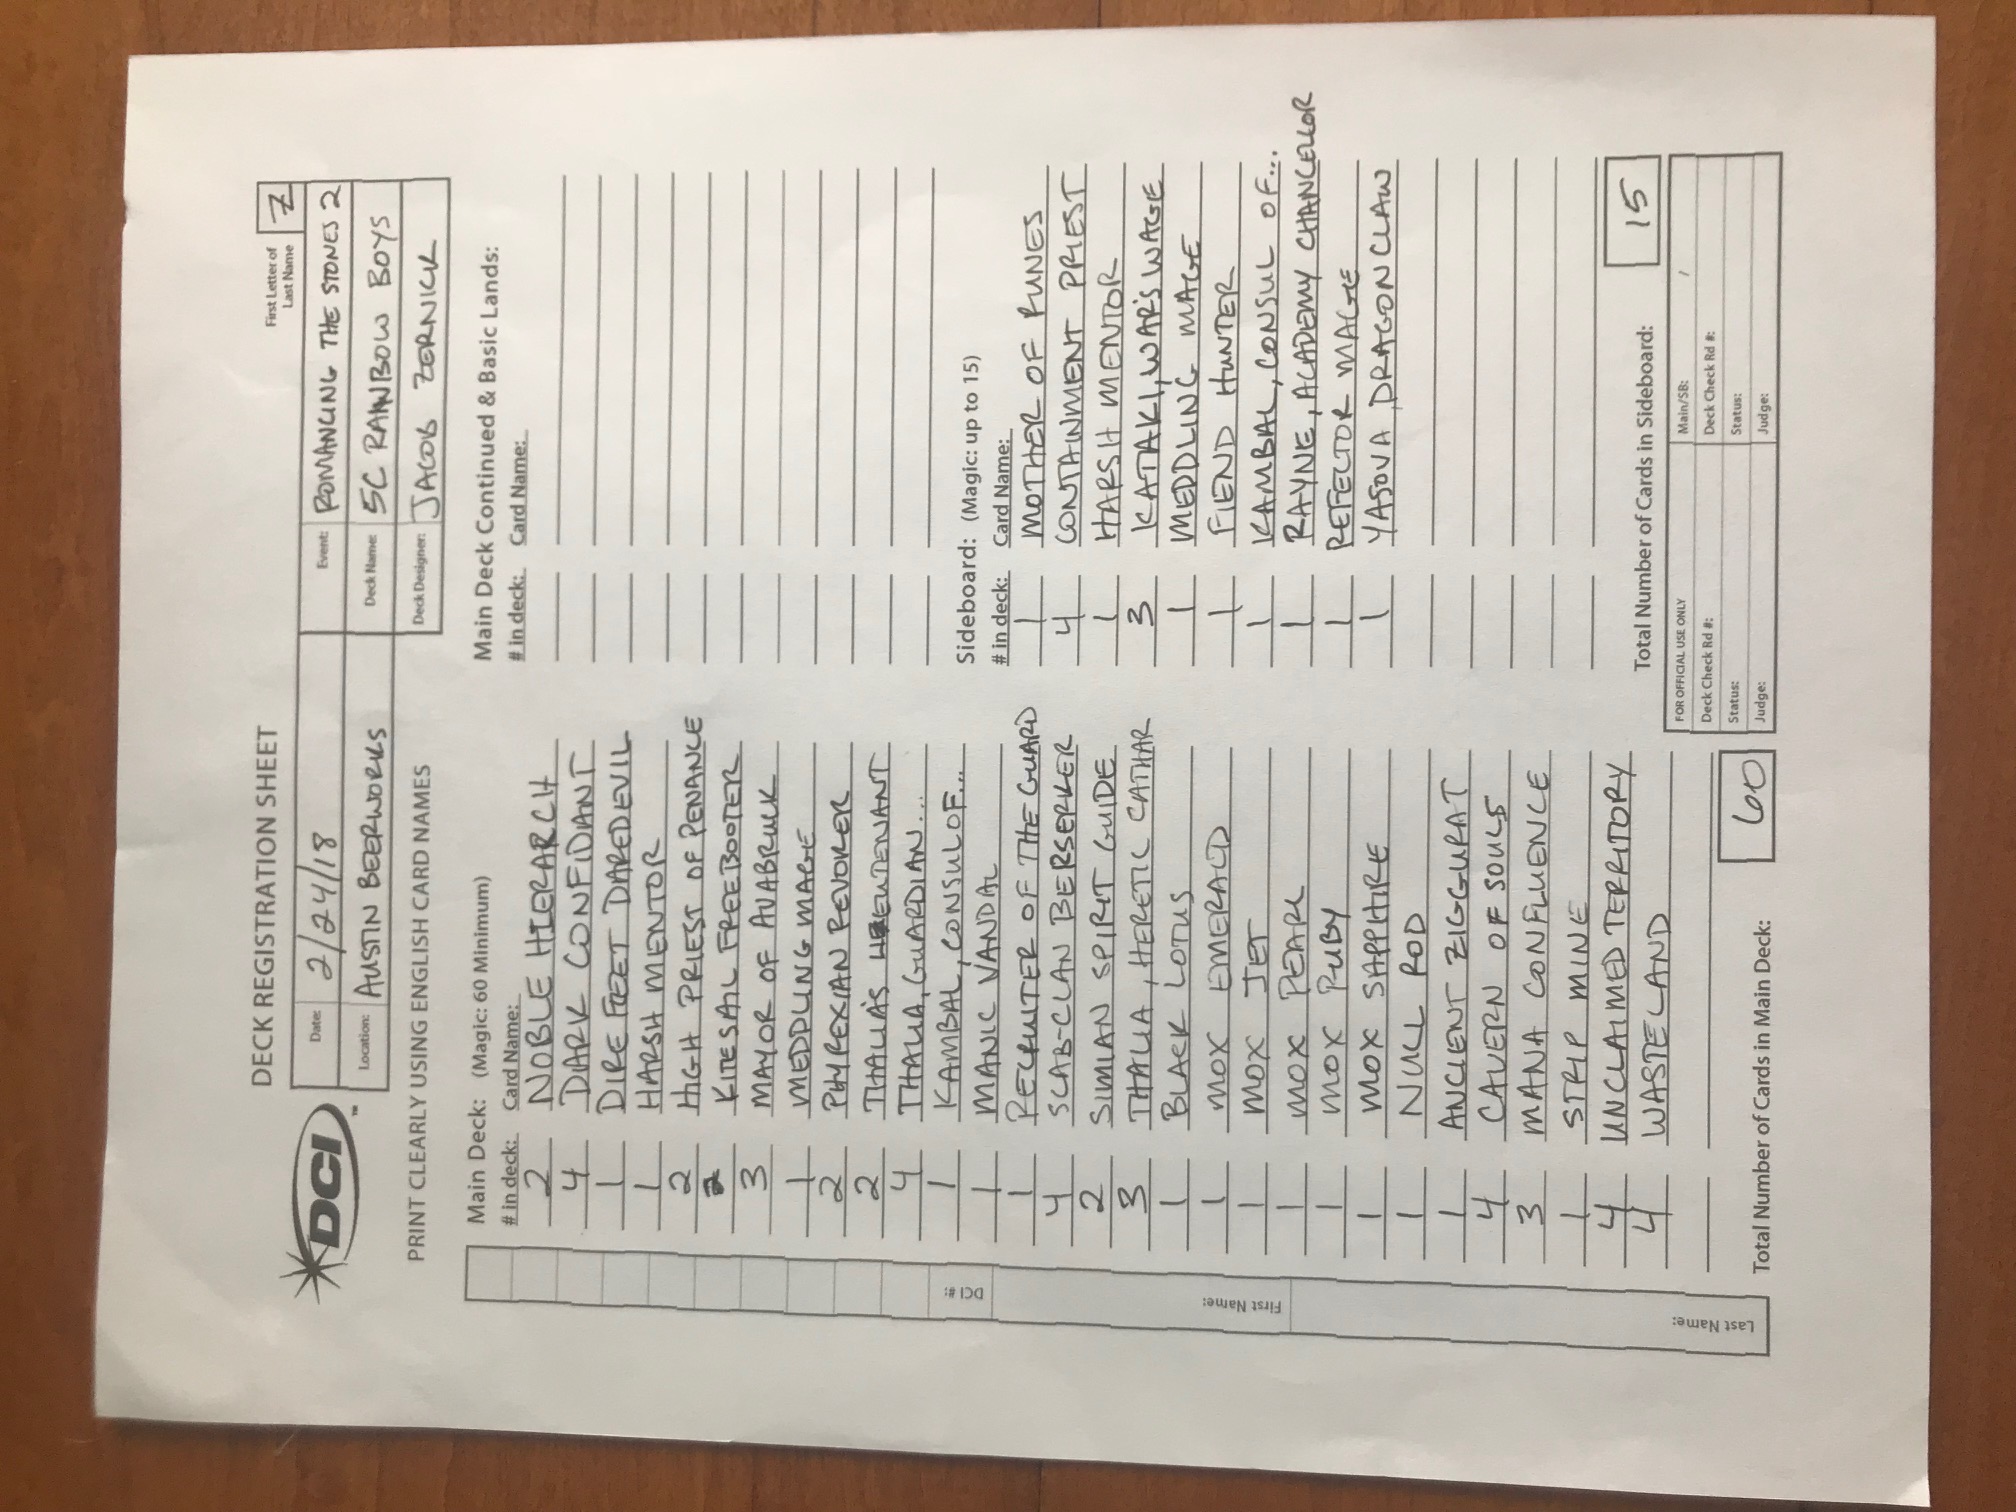 DECK REGISTRATION SHEET
First Letter of Last Name Z
DCI™
Date: 2/24/18
Event: ROMANCING THE STONES 2
Location: AUSTIN BEERWORKS
Deck Name: 5C RAINBOW BOYS
PRINT CLEARLY USING ENGLISH CARD NAMES
Deck Designer: JACOB ZERNICK
Main Deck: (Magic: 60 Minimum)
# in deck: Card Name:
2 NOBLE HIERARCH
4 DARK CONFIDANT
1 DIRE FLEET DAREDEVIL
1 HARSH MENTOR
2 HIGH PRIEST OF PENANCE
2 KITESAIL FREEBOOTER
3 MAYOR OF AVABRUCK
1 MEDDLING MAGE
2 PHYREXIAN REVOKER
2 THALIA'S LIEUTENANT
4 THALIA, GUARDIAN...
1 KAMBAL, CONSUL OF...
1 MANIC VANDAL
1 RECRUITER OF THE GUARD
4 SCAB-CLAN BERSERKER
2 SIMIAN SPIRIT GUIDE
3 THALIA, HERETIC CATHAR
1 BLACK LOTUS
1 MOX EMERALD
1 MOX JET
1 MOX PEARL
1 MOX RUBY
1 MOX SAPPHIRE
1 NULL ROD
1 ANCIENT ZIGGURAT
4 CAVERN OF SOULS
3 MANA CONFLUENCE
1 STRIP MINE
4 UNCLAIMED TERRITORY
4 WASTELAND
Total Number of Cards in Main Deck: 60
Main Deck Continued & Basic Lands:
# in deck: Card Name:
Sideboard: (Magic: up to 15)
# in deck: Card Name:
1 MOTHER OF RUNES
4 CONTAINMENT PRIEST
1 HARSH MENTOR
3 KATAKI, WAR'S WAGE
1 MEDDLING MAGE
1 FIEND HUNTER
1 KAMBAL, CONSUL OF...
1 RAYNE, ACADEMY CHANCELLOR
1 REFECTOR MAGE
1 YASOVA DRAGONCLAW
Total Number of Cards in Sideboard: 15
FOR OFFICIAL USE ONLY
Main/SB: /
Deck Check Rd #: Deck Check Rd #:
Status: Status:
Judge: Judge:
DCI #:
First Name:
Last Name: